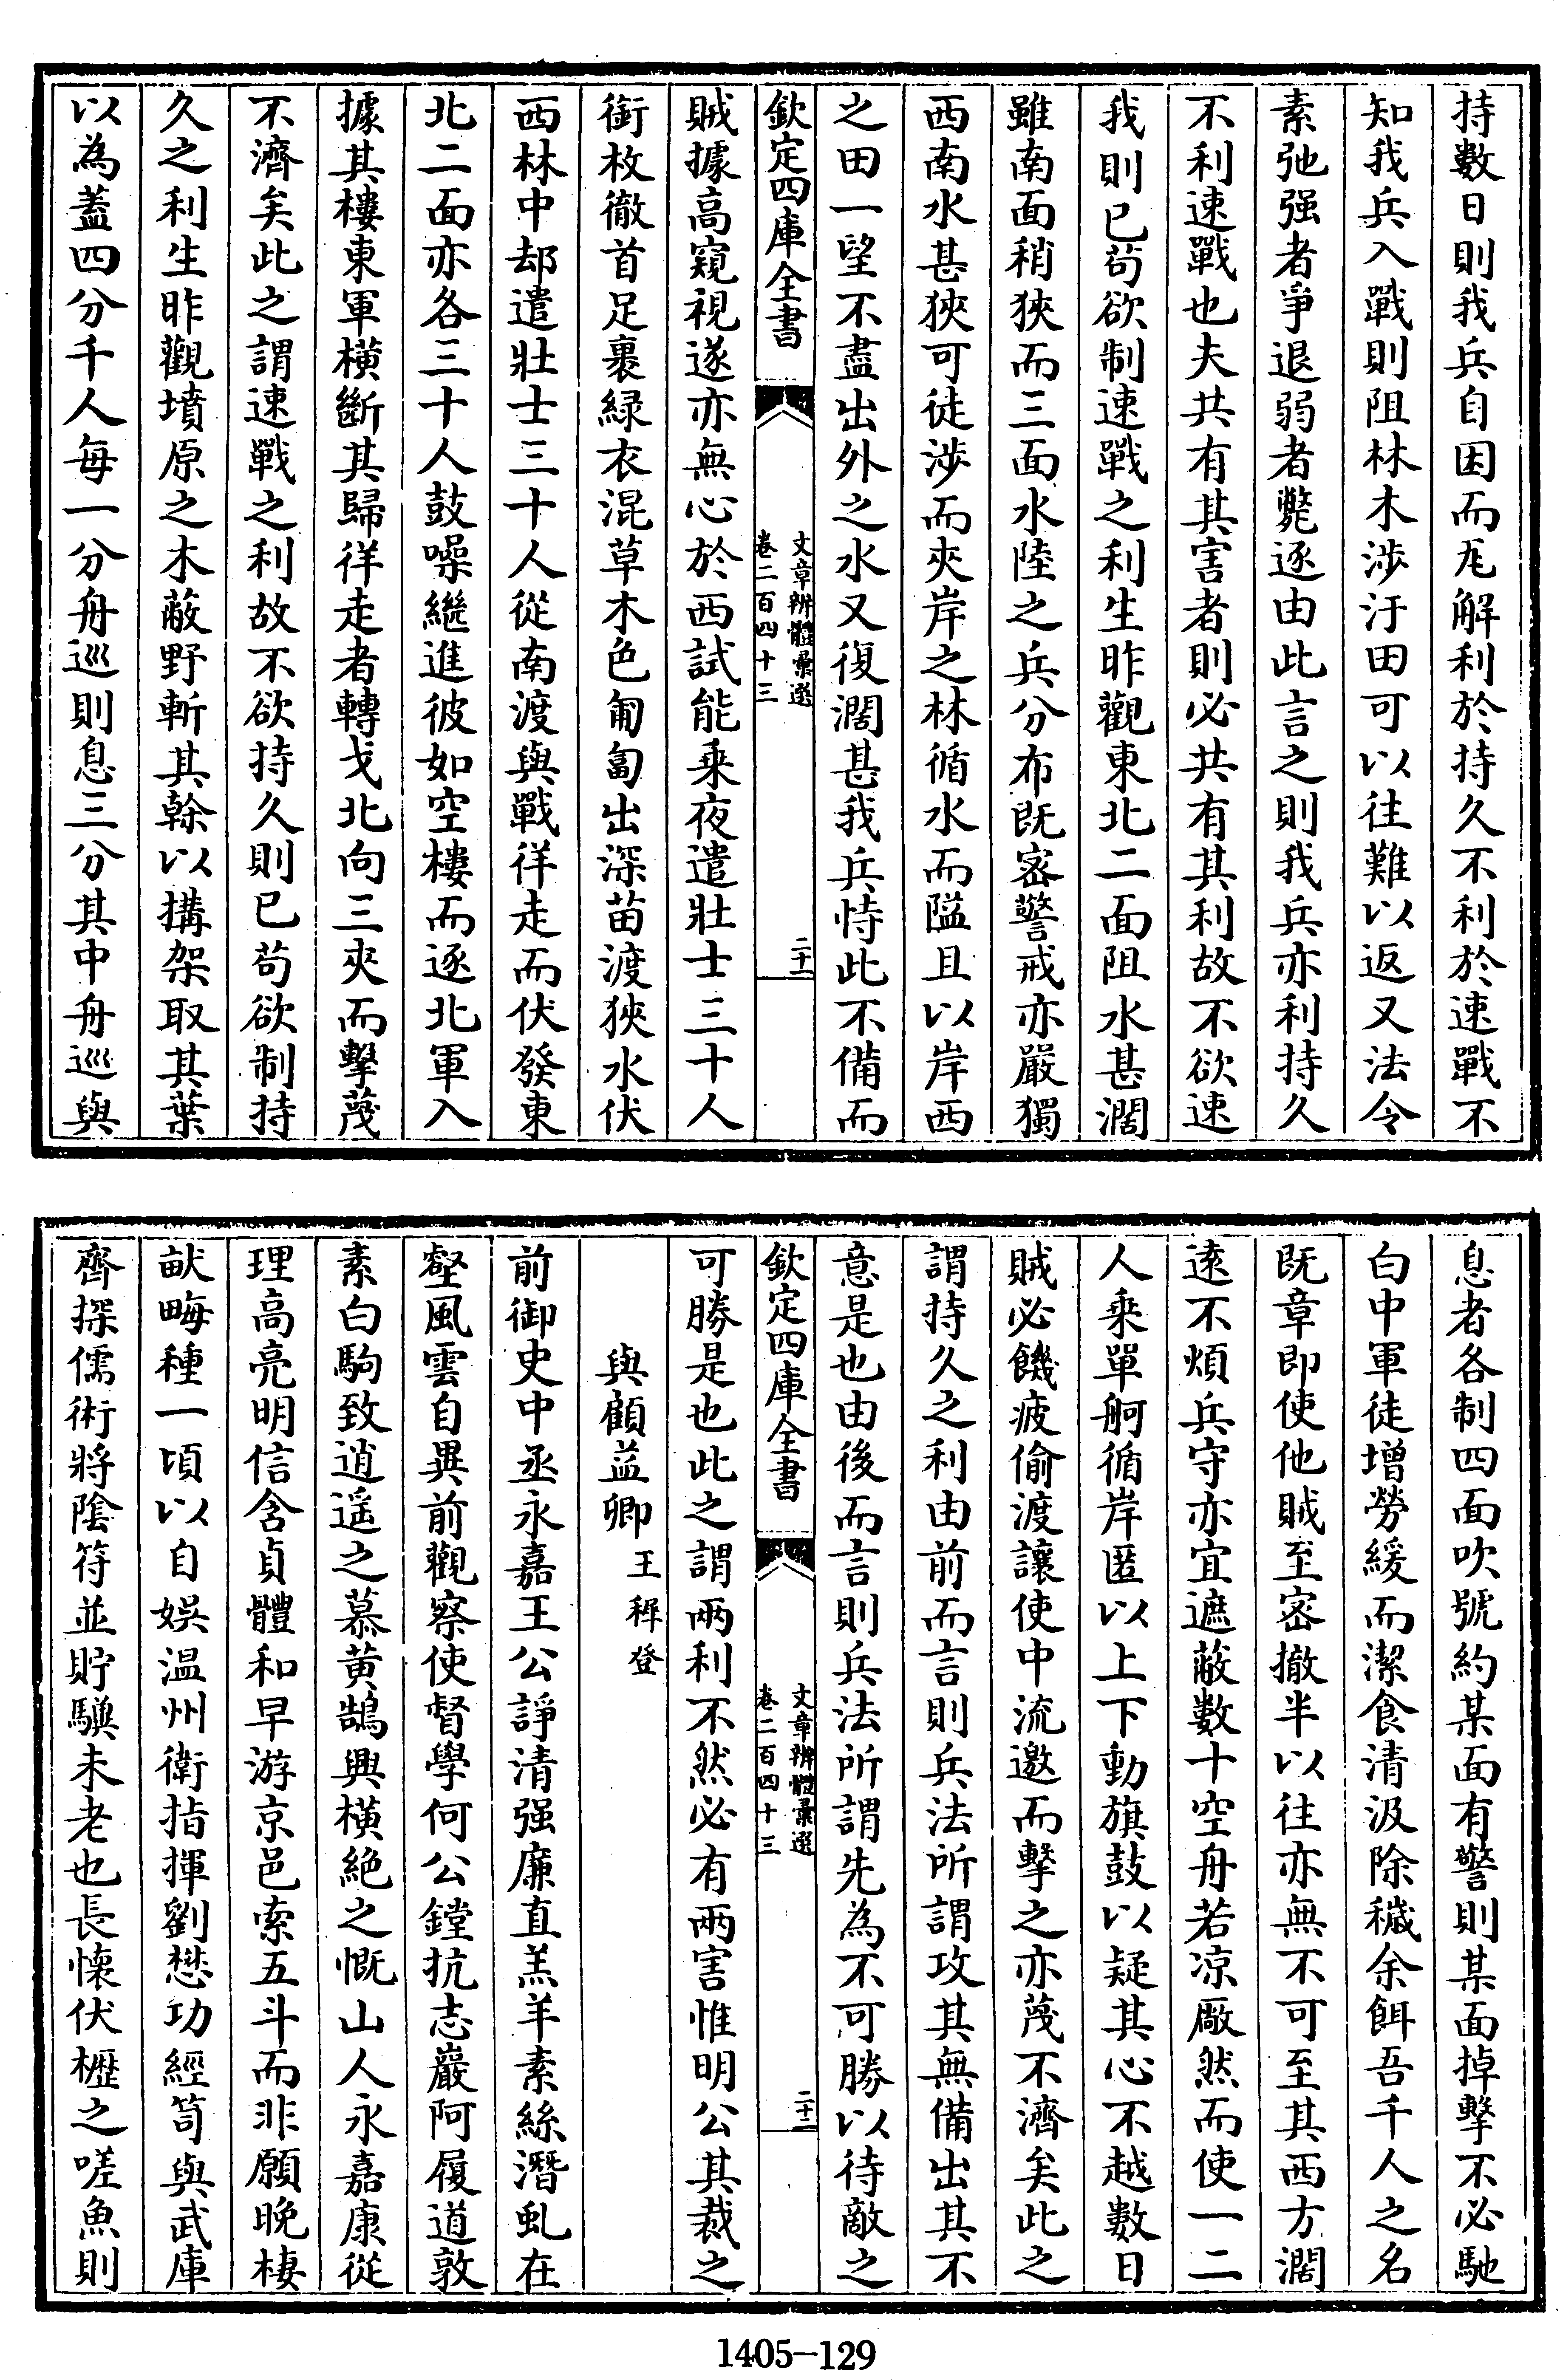 持數日則我兵自困而尨解利於持久不利於速戰不
知我兵入戰則阻林木渉汙田可以往難以返又法令
素弛强者爭退弱者斃逐由此言之則我兵亦利持久
不利速戰也夫共有其害者則必共有其利故不欲速
我則已苟欲制速戰之利生昨觀東北二面阻水甚濶
雖南面稍狹而三面水陸之兵分布既宻警戒亦嚴獨
西南水甚狹可徒渉而夾岸之林循水而隘且以岸西
之田一望不盡出外之水又復濶甚我兵恃此不備而
欽定四庫全書
文章辨體彙選
卷二百四十三
二十一
賊據高窺視遂亦無心於西試能乗夜遣壯士三十人
銜枚徹首足裹緑衣混草木色匍匐出深苗渡狹水伏
西林中却遣壯士三十人從南渡與戰徉走而伏發東
北二面亦各三十人鼓噪繼進彼如空樓而逐北軍入
據其樓東軍横斷其歸徉走者轉戈北向三夾而擊蔑
不濟矣此之謂速戰之利故不欲持久則已苟欲制持
久之利生昨觀墳原之木蔽野斬其榦以搆架取其葉
以為葢四分千人每一分舟巡則息三分其中舟巡與
息者各制四面吹號約某面有警則某面掉擊不必馳
白中軍徒增勞緩而潔食清汲除穢余餌吾千人之名
既章即使他賊至宻撤半以往亦無不可至其西方濶
逺不煩兵守亦宜遮蔽數十空舟若凉厰然而使一二
人乗單舸循岸匿以上下動旗鼓以疑其心不越數日
賊必饑疲偷渡讓使中流邀而擊之亦蔑不濟矣此之
謂持久之利由前而言則兵法所謂攻其無備出其不
意是也由後而言則兵法所謂先為不可勝以待敵之
欽定四庫全書
文章辨體彙選
卷二百四十三
二十二
可勝是也此之謂兩利不然必有兩害惟明公其裁之
與顧益卿 王穉登
前御史中丞永嘉王公諍清强廉直羔羊素絲潛虬在
壑風雲自異前觀察使督學何公鏜抗志巖阿履道敦
素白駒致逍遥之慕黄鵠興横絶之慨山人永嘉康從
理高亮明信含貞體和早游京邑索五斗而非願晚棲
畎畮種一頃以自娛温州衛指揮劉懋功經笥與武庫
齊探儒術將陰符並貯驥未老也長懷伏櫪之嗟魚則
1405-129